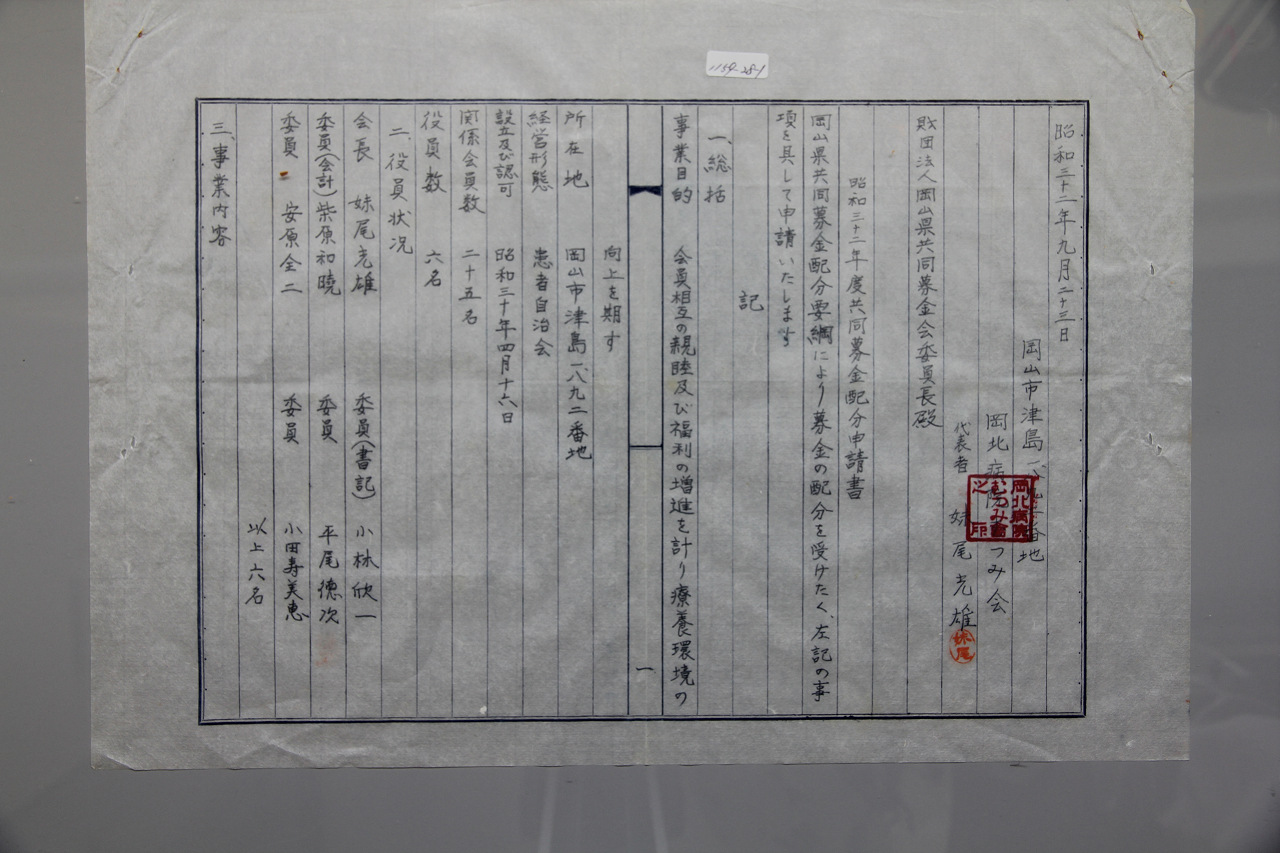 1154-28-1
昭和三十二年九月二十三日
岡山市津島一、八九二番地
岡北病院むつみ会
代表者 妹尾光雄
妹尾
岡北病院むつみ会之印
財団法人岡山県共同募金会委員長殿
昭和三十二年度共同募金配分申請書
岡山県共同募金配分要綱により募金の配分を受けたく、左記の事
項を具して申請いたします
記
一、総括
事業目的 会員相互の親睦及び福利の増進を計り療養環境の
一
向上を期す
所在地 岡山市津島一、八九二番地
経営形態 患者自治会
設立及び認可 昭和三十年四月十六日
関係会員数 二十五名
役員数 六名
二、役員状况
会長 妹尾光雄 委員(書記) 小林欣一
委員(会計) 柴原和曉 委員 平尾徳次
委員 安原全二 委員 小田寿美恵
以上六名
三、事業内容